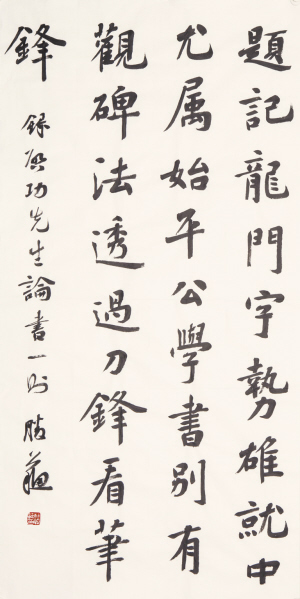 題記龍門字勢雄就中
尤属始平公學書别有
觀碑法透過刀鋒看筆
鋒
録啟功先生論書一則